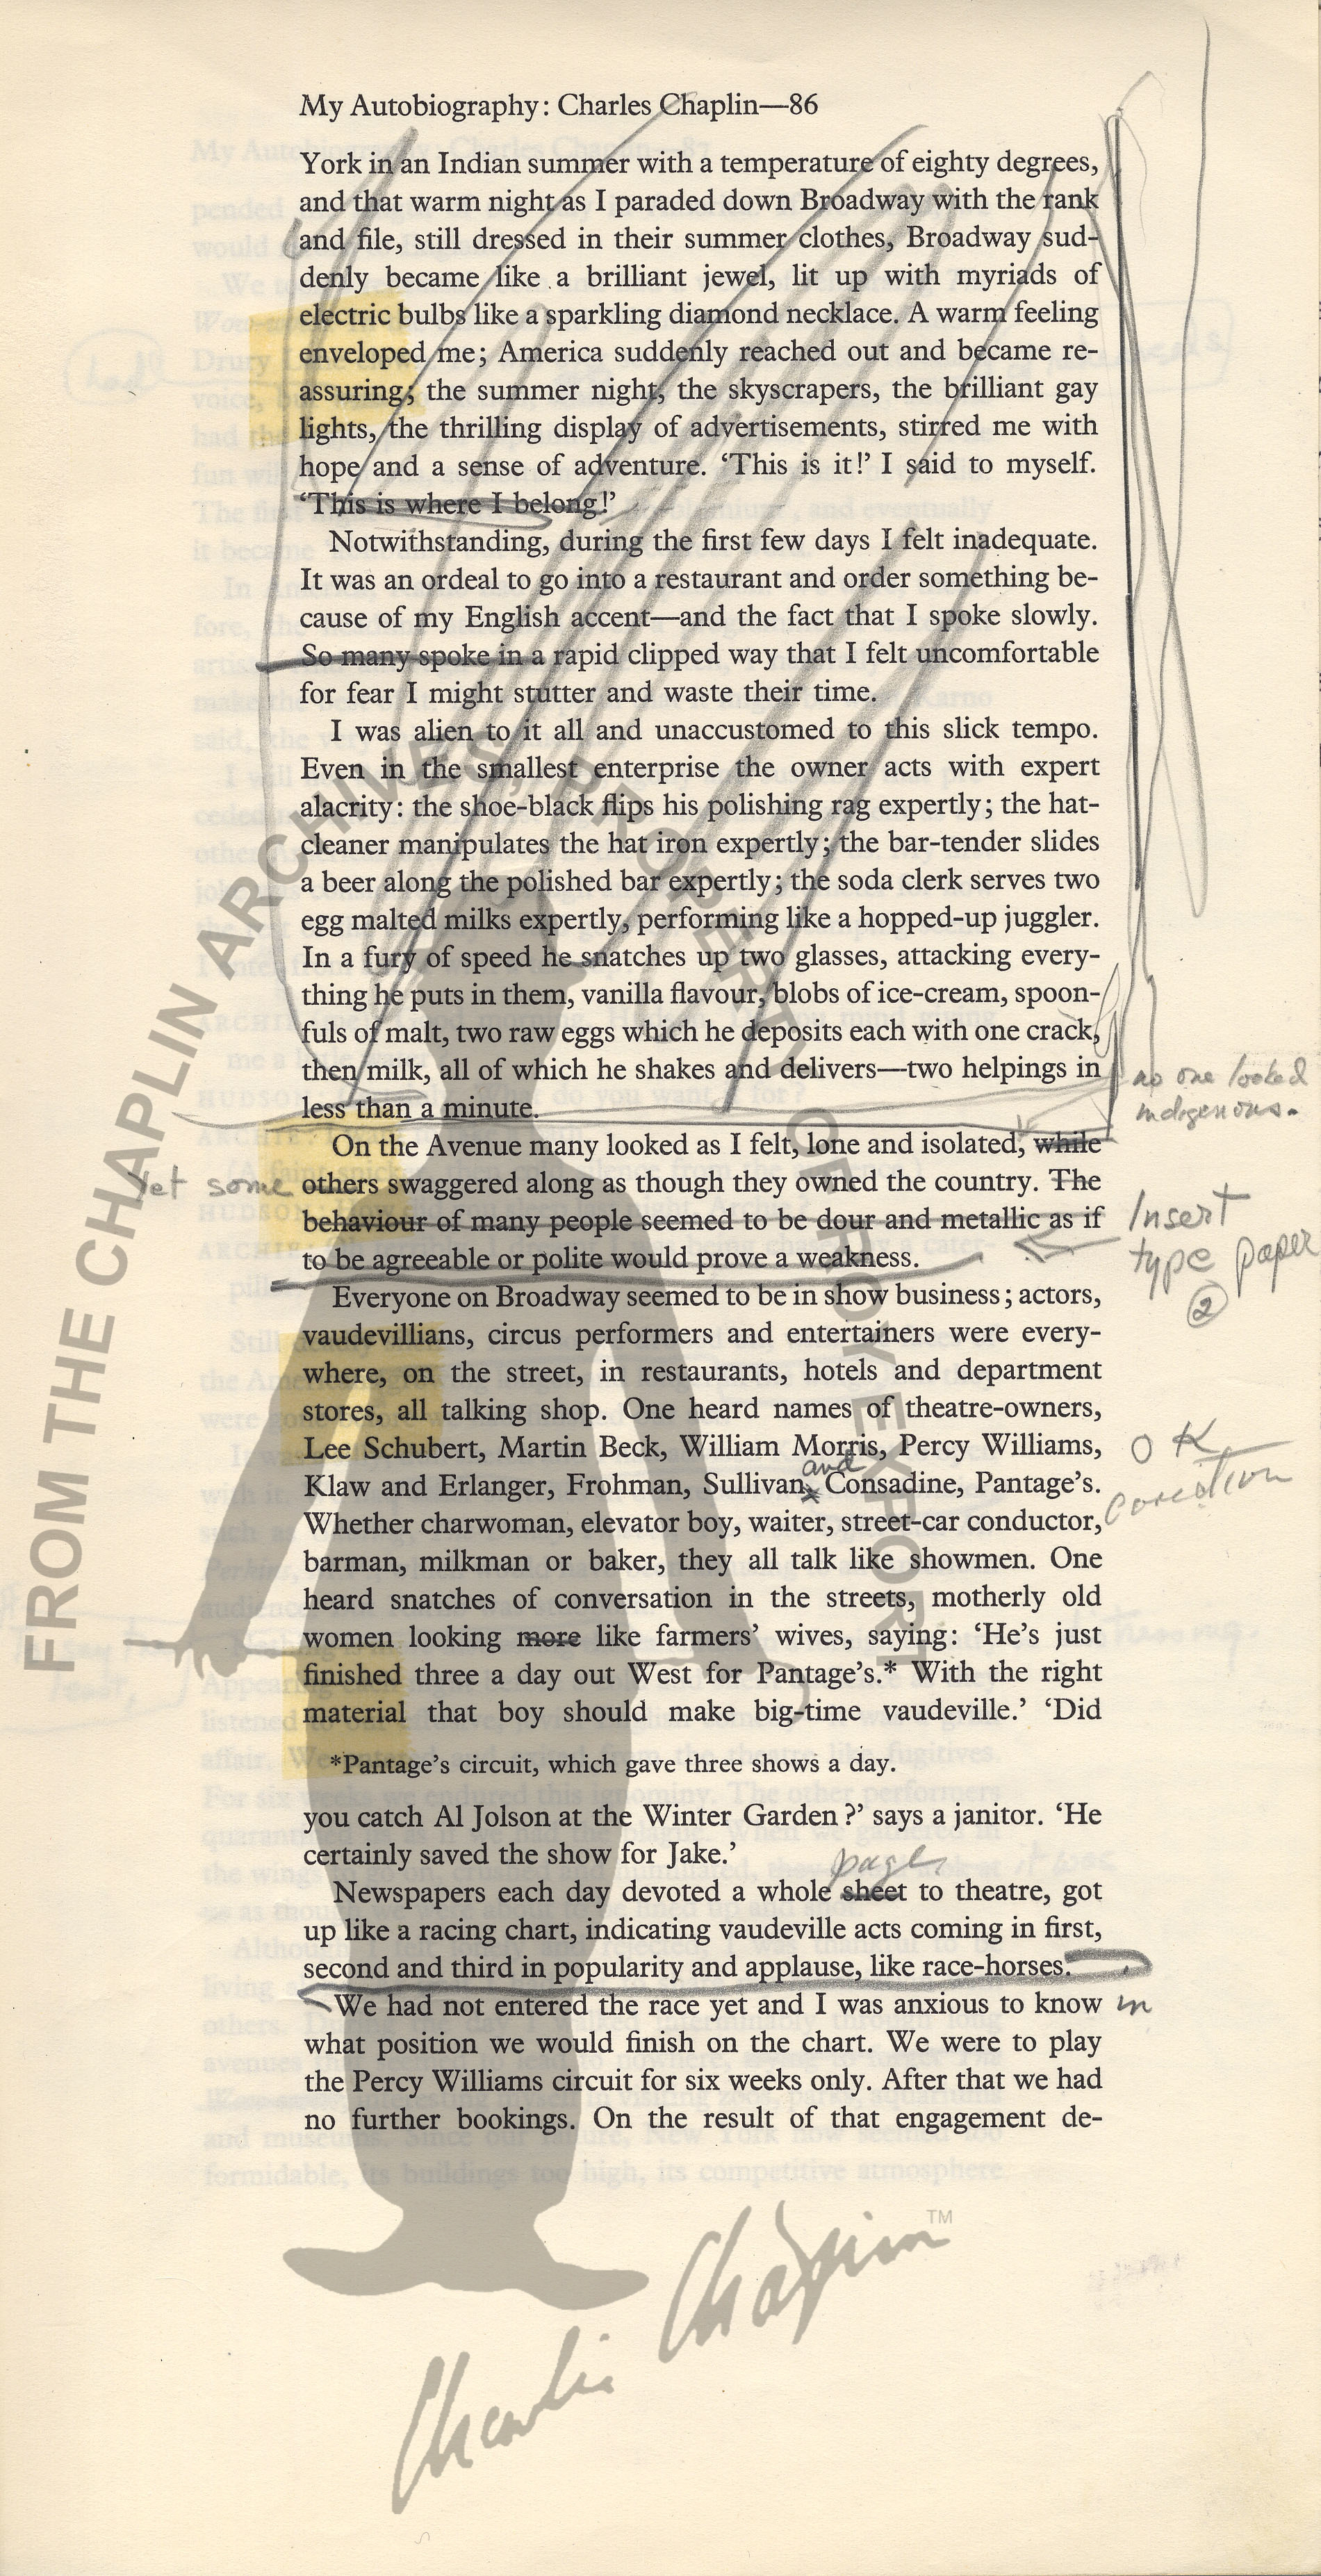 My Autobiography: Charles Chaplin—86
York in an Indian summer with a temperature of eighty degrees,
and that warm night as I paraded down Broadway with the rank
and file, still dressed in their summer clothes, Broadway sud-
denly became like a brilliant jewel, lit up with myriads of
electric bulbs like a sparkling diamond necklace. A warm feeling
enveloped me; America suddenly reached out and became re-
assuring; the summer night, the skyscrapers, the brilliant gay
lights, the thrilling display of advertisements, stirred me with
hope and a sense of adventure. ‘This is it!’ I said to myself.
‘This is where I belong!’
Notwithstanding, during the first few days I felt inadequate.
It was an ordeal to go into a restaurant and order something be-
cause of my English accent—and the fact that I spoke slowly.
So many spoke in a rapid clipped way that I felt uncomfortable
for fear I might stutter and waste their time.
I was alien to it all and unaccustomed to this slick tempo.
Even in the smallest enterprise the owner acts with expert
alacrity: the shoe-black flips his polishing rag expertly; the hat-
cleaner manipulates the hat iron expertly; the bar-tender slides
a beer along the polished bar expertly; the soda clerk serves two
egg malted milks expertly, performing like a hopped-up juggler.
In a fury of speed he snatches up two glasses, attacking every-
thing he puts in them, vanilla flavour, blobs of ice-cream, spoon-
fuls of malt, two raw eggs which he deposits each with one crack,
then milk, all of which he shakes and delivers—two helpings in
less than a minute.
no one looked
indigenous.
On the Avenue many looked as I felt, lone and isolated, while
yet some
others swaggered along as though they owned the country. The
behaviour of many people seemed to be dour and metallic as if
to be agreeable or polite would prove a weakness.
Insert
type paper
2
Everyone on Broadway seemed to be in show business; actors,
vaudevillians, circus performers and entertainers were every-
where, on the street, in restaurants, hotels and department
stores, all talking shop. One heard names of theatre-owners,
Lee Schubert, Martin Beck, William Morris, Percy Williams,
and
Klaw and Erlanger, Frohman, Sullivan, Consadine, Pantage's.
OK
Whether charwoman, elevator boy, waiter, street-car conductor,
barman, milkman or baker, they all talk like showmen. One
heard snatches of conversation in the streets, motherly old
women looking more like farmers’ wives, saying: ‘He's just
finished three a day out West for Pantage's.* With the right
material that boy should make big-time vaudeville.’ ‘Did
*Pantage's circuit, which gave three shows a day.
you catch Al Jolson at the Winter Garden?’ says a janitor. ‘He
certainly saved the show for Jake.’
page
Newspapers each day devoted a whole sheet to theatre, got
up like a racing chart, indicating vaudeville acts coming in first,
second and third in popularity and applause, like race-horses.
We had not entered the race yet and I was anxious to know
in
what position we would finish on the chart. We were to play
the Percy Williams circuit for six weeks only. After that we had
no further bookings. On the result of that engagement de-
FROM THE CHAPLIN ARCHIVES, PROPERTY OF ROY EXPORT
Charlie Chaplin TM